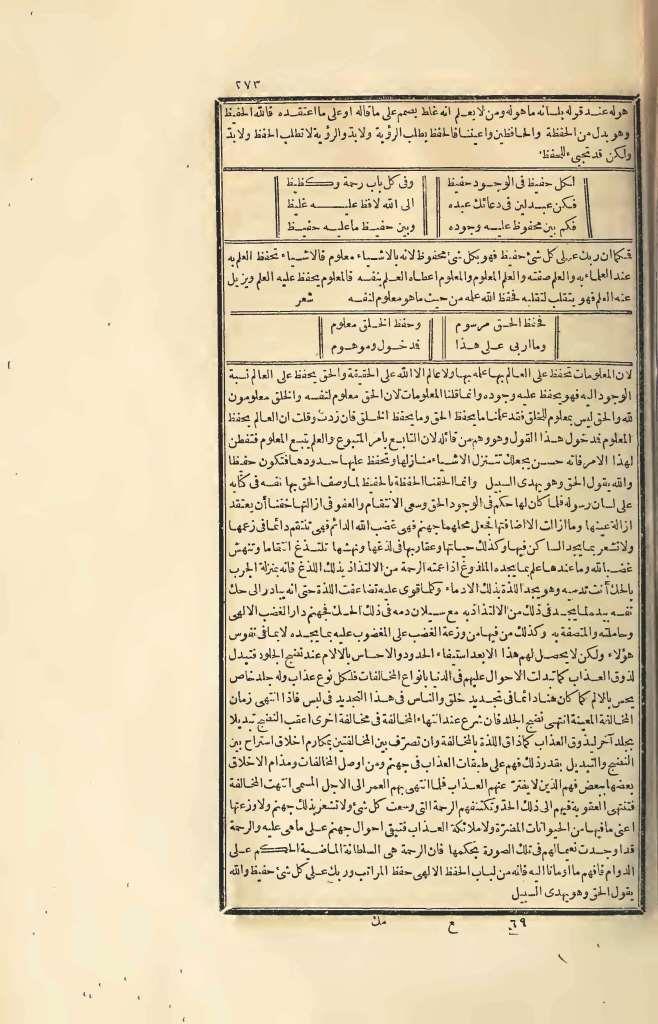 ٢٧٣
هو له عند قوله بلسانه ما هو له ومن لا يعلم انه غلط يصمم على ما قاله او على ما اعتقده فالله الحفيظ
وهو بدل من الحفظة والحافظين واعيننا فالحفظ يطلب الرؤية ولا بد والرؤية لا تطلب الحفظ ولا بد
ولكن قد تجىء للحفظ
لكل حفيظ فى الوجود حفيظ وفى كل باب رحمة وكظيظ
فكن عبد لين فى دعائك عبده الى الله لا فظ عليه غليظ
فكم بين محفوظ عليه وجوده وبين حفيظ ما عليه حفيظ
فكما ان ربك على كل شئ حفيظ فهو بكل شئ محفوظ لانه بالاشياء معلوم فالاشياء تحفظ العلم به
عند العلماء به والعلم صفته والعلم المعلوم والمعلوم اعطاه العلم بنفسه فالمعلوم يحفظ عليه العلم ويزيل
عنه العلم فهو يتقلب لتقلبه فحفظ الله علمه من حيث ما هو معلوم لنفسه شعر
فحفظ الحق مرسوم وحفظ الخلق معلوم
وما اربى على هذا فدخول وموهوم
لان المعلومات تحفظ على العالم بها علمه بها ولا عالم الا الله على الحقيقة والحق يحفظ على العالم نسبة
الوجود اليه فهو يحفظ عليه وجوده وانما قلنا المعلومات لان الحق معلوم لنفسه والخلق معلومون
لله والحق ليس بمعلوم للخلق فقد علمنا ما يحفظ الحق وما يحفظ الخلق فان زدت وقلت ان العالم يحفظ
المعلوم فدخول هذا القول وهو وهم من قائله لان التابع بامر المتبوع والعلم يتبع المعلوم فتفطن
لهذا الامر فانه حسن يجعلك تتنزل الاشياء منازلها وتحفظ عليها حدودها فتكون حفيظا
والله يقول الحق وهو يهدى السبيل وانما الحقنا الحفظة بالحفيظ لما وصف الحق بها نفسه فى كتابه
على لسان رسوله فلما كان لها حكم فى الوجود الحق وسعى الانتقام والعفو فى ازالتها خفنا أن يعتقد
ازالة عينها وما ازالت الا اضافتها فجعل محلهما جهنم فهى غضب الله الدائم فهى تنتقم دائما فى زعمها
ولا تشعر بما يجد الساكن فيها وكذلك حياتها وعقاربها فى لدغها ونهشها تلدغ انتقاما وتنهش
غضبا لله وما عندها علم بما يجده الملدوغ اذا عمته الرحمة من الالتذاذ بذلك اللذغ فانه بمنزلة الجرب
بالحك أنت تدميه وهو يجد اللذة بذلك الادماء وكلما قوى عليه تضاعفت اللذة حتى انه يبادر الى حك
نفسه بيده لما يجد فى ذلك من الالتذاذ به مع سيلان دمه فى ذلك الحك فجهنم دار الغضب الالهى
وحاملته والمتصفة به وكذلك من فيها من وزعة الغضب على المغضوب عليه بما يجده لا بما فى نفوس
هؤلاء ولكن لا يحصل لهم هذا الا بعد استيفاء الحدود والاحساس بالآلام عند نضج الجلود فتبدل
لذوق العذاب كما تبدلت الاحوال عليهم فى الدنيا بانواع المخالفات فلكل نوع عذاب وله جلد خاص
يحس بالالم كما كان هنا دائما فى تجديد خلق والناس فى هذا التجديد فى لبس فاذا انتهى زمان
المخالفة المعينة انتهى نضج الجلد فان شرع عند انتهاء المخالفة فى مخالفة اخرى اعقب النضج تبديلا
بجلد آخر ليذوق العذاب كما ذاق اللذة بالمخالفة وان تصرف بين المخالفتين بمكارم اخلاق استراح بين
النضج والتبديل بقدر ذلك فهم على طبقات العذاب فى جهنم ومن اوصل المخالفات ومذام الاخلاق
بعضها ببعض فهم الذين لا يفتر عنهم العذاب فلما انتهى بهم العمر الى الاجل المسمى انتهت المخالفة
فتنتهى العقوبة فيهم الى ذلك الحد وتكنفهم الرحمة التى وسعت كل شئ ولا تشعر بذلك جهنم ولا وزعتها
اعنى ما فيها من الحيوانات المضرة ولا ملائكة العذاب فتبقى احوال جهنم على ما هى عليه والرحمة
قد اوجدت نعيما لهم فى تلك الصورة بحكمها فان الرحمة هى السلطانة الماضية الحكم على
الدوام فافهم ما اومأنا اليه فانه من لباب الحفظ الالهى حفظ المراتب وربك على كل شئ حفيظ والله
يقول الحق وهو يهدى السبيل
٦٩ ع مك